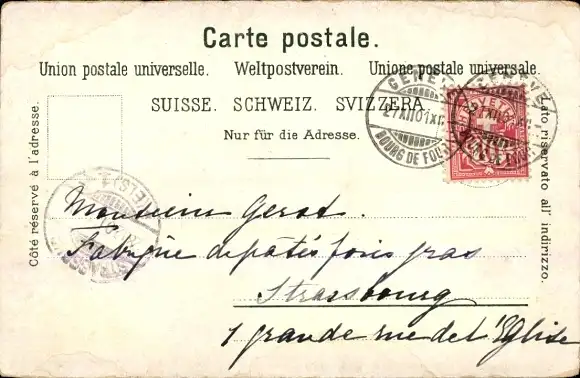 Carte postale.
Union postale universelle. Weltpostverein. Unione postale universale.
SUISSE. SCHWEIZ. SVIZZERA.
Nur für die Adresse.
Côté réservé à l'adresse.
Lato riservato all' indirizzo.
GENÈVE
21 XII 01 XII
BOURG DE FOUR
HELVETIA
10
Monsieur Gerot.
Fabrique de pâtés foies gras
Strassbourg
1 grande rue de l'Eglise